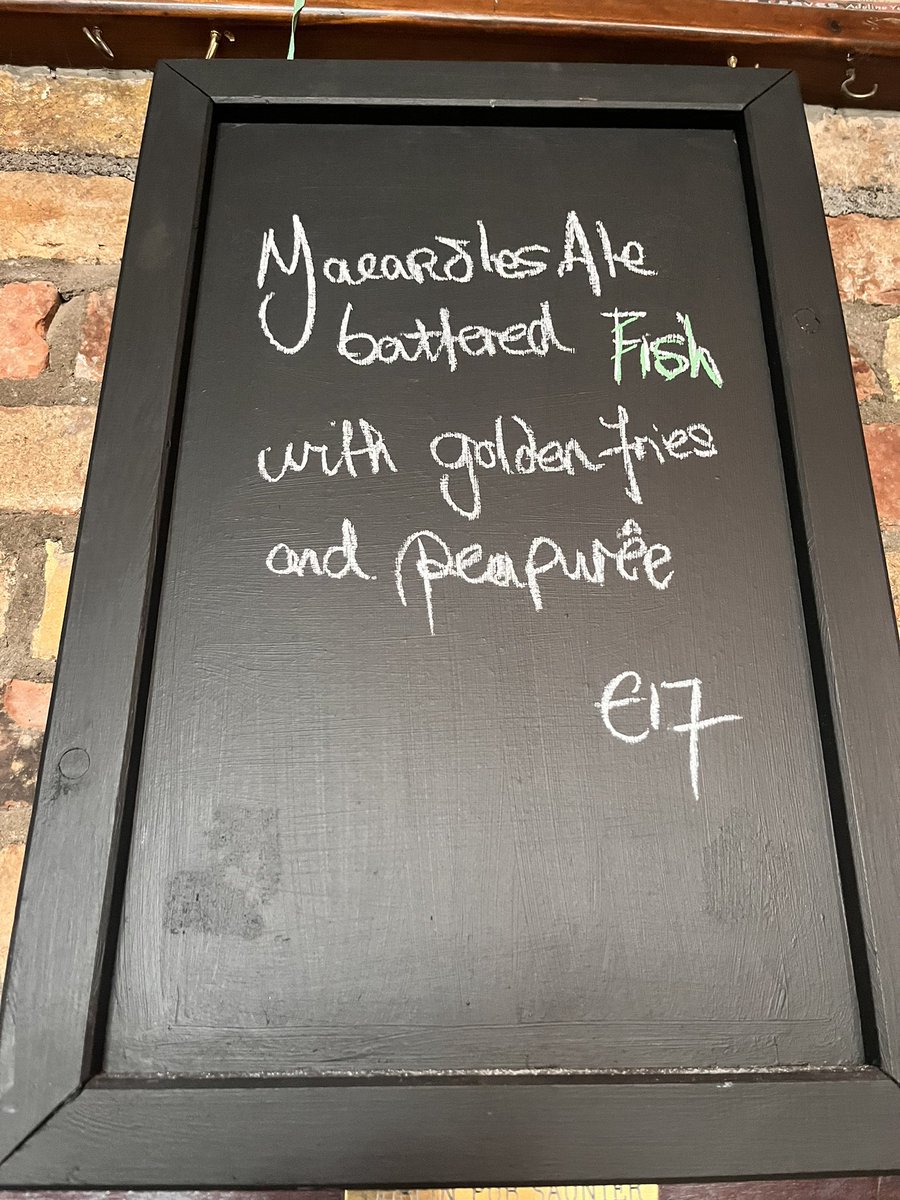 Macardles Ale
battered Fish
with golden fries
and pea purêe
€17